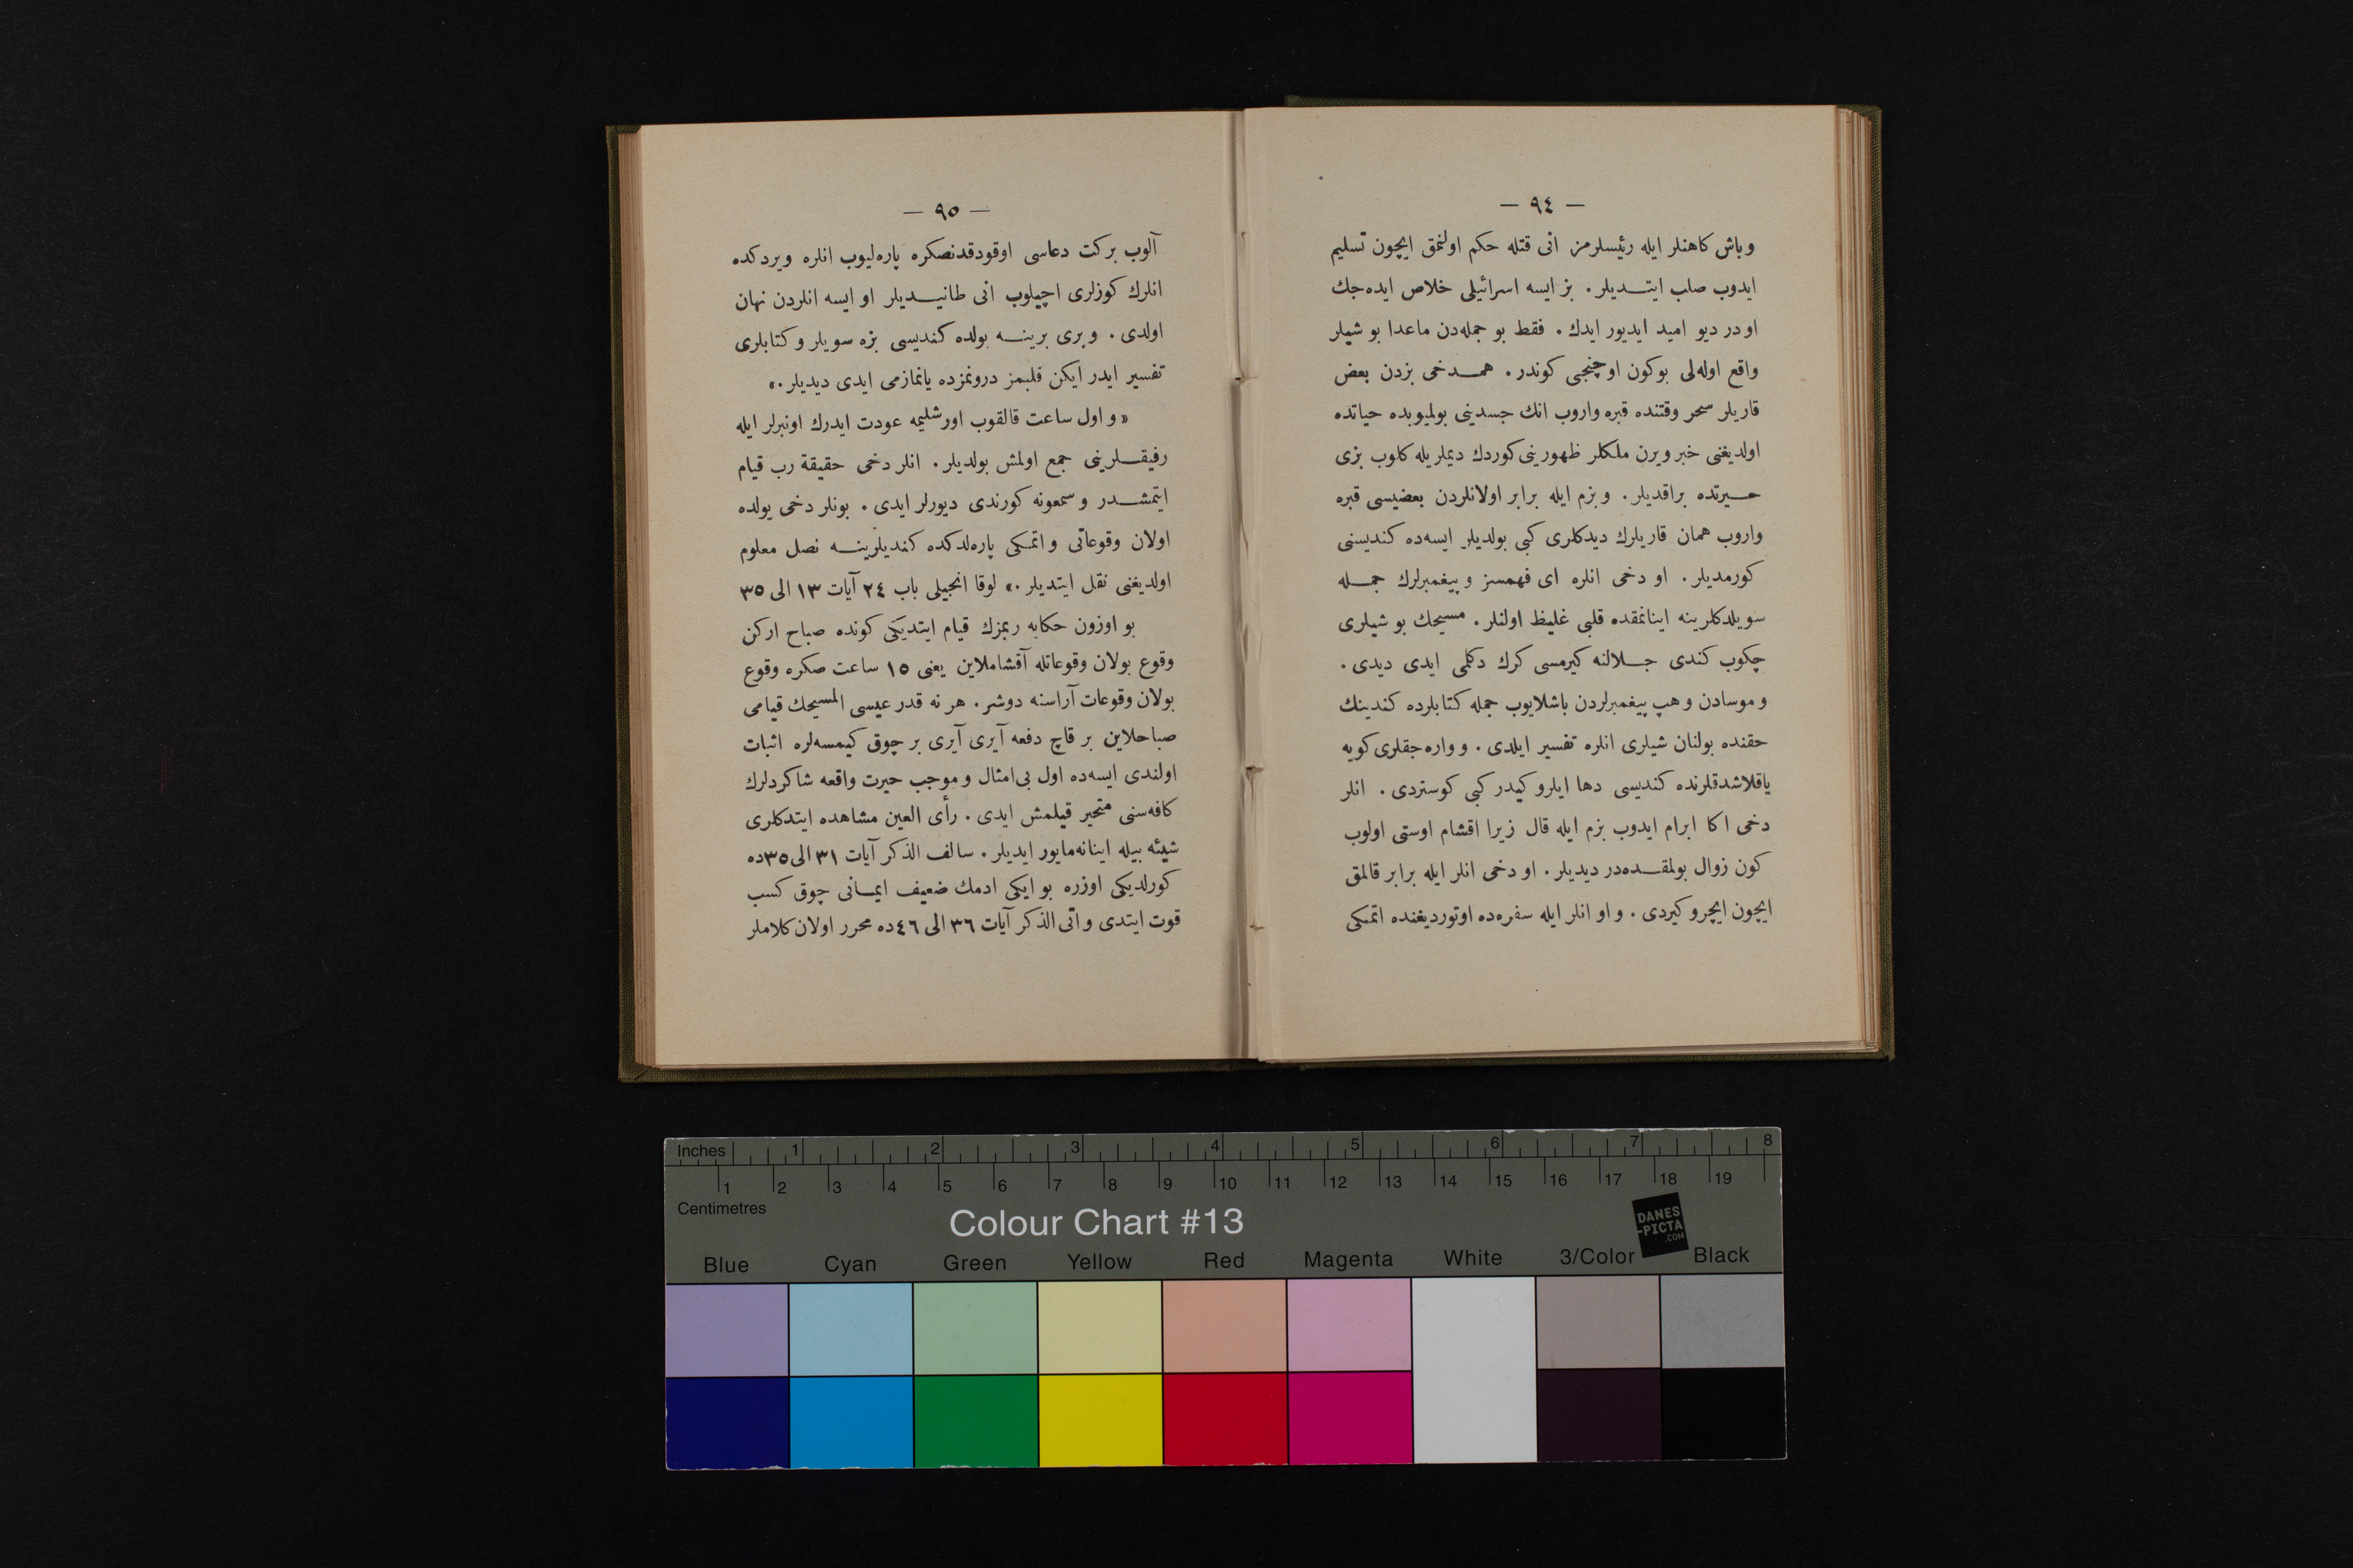 — ٩٤ —
وباش كاهنلر ايله رئيسلرمز انى قتله حكم اولنمق ايچون تسليم
ايدوب صلب ايتـــديلر. بز ايسه اسرائيلى خلاص ايده‌جك
او در ديو اميد ايديور ايدك. فقط بو جمله‌دن ماعدا بو شيلر
واقع اوله‌لى بوكون اوچنجى كوندر. همـــدخى بزدن بعض
قاريلر سحر وقتنده قبره واروب انك جسدينى بولميوبده حياتده
اولديغنى خبر ويرن ملكلر ظهورينى كوردك ديملريله كلوب بزى
حـــيرتده براقديلر. وبزم ايله برابر اولانلردن بعضيسى قبره
واروب همان قاريلرك ديدكلرى كبى بولديلر ايسه‌ده كنديسنى
كورمديلر. او دخى انلره اى فهمسز وپيغمبرلرك جمــله
سويلدكلرينه اينانمقده قلبى غليظ اولنلر. مسيحك بو شيلرى
چكوب كندى جـــلالنه كيرمسى كرك دكلمى ايدى ديدى.
وموسادن وهپ پيغمبرلردن باشلايوب جمله كتابلرده كندينك
حقنده بولنان شيلرى انلره تفسير ايلدى. وواره‌جقلرى كويه
ياقلاشدقلرنده كنديسى دها ايلرو كيدر كبى كوستردى. انلر
دخى اكا ابرام ايدوب بزم ايله قال زيرا اقشام اوستى اولوب
كون زوال بولمقـــده‌در ديديلر. او دخى انلر ايله برابر قالمق
ايچون ايچرو كيردى. واو انلر ايله سفره‌ده اوتورديغنده اتمكى
— ٩٥ —
آلوب بركت دعاسى اوقودقدنصكره پاره‌ليوب انلره ويردكده
انلرك كوزلرى اچيلوب انى طانيـــديلر او ايسه انلردن نهان
اولدى. وبرى برينـــه بولده كنديسى بزه سويلر وكتابلرى
تفسير ايدر ايكن قلبمز درونمزده يانمازمى ايدى ديديلر.»
«واول ساعت قالقوب اورشليمه عودت ايدرك اونبرلر ايله
رفيقـــلرينى جمع اولمش بولديلر. انلر دخى حقيقة رب قيام
ايتمشـــدر وسمعونه كورندى ديورلر ايدى. بونلر دخى يولده
اولان وقوعاتى واتمكى پاره‌لدكده كنديلرينـــه نصل معلوم
اولديغنى نقل ايتديلر.» لوقا انجيلى باب ٢٤ آيات ١٣ الى ٣٥
بو اوزون حكايه ربمزك قيام ايتديكى كونده صباح اركن
وقوع بولان وقوعاتله آقشاملاين يعنى ١٥ ساعت صكره وقوع
بولان وقوعات آراسنه دوشر. هر نه قدر عيسى المسيحك قيامى
صباحلاين بر قاچ دفعه آيرى آيرى بر چوق كيمسه‌لره اثبات
اولندى ايسه‌ده اول بى‌امثال وموجب حيرت واقعه شاكردلرك
كافه‌سنى متحير قيلمش ايدى. رأى العين مشاهده ايتدكلرى
شيئه بيله اينانه‌مايور ايديلر. سالف الذكر آيات ٣١ الى ٣٥ده
كورلديكى اوزره بو ايكى ادمك ضعيف ايمــانى چوق كسب
قوت ايتدى واتى الذكر آيات ٣٦ الى ٤٦ده محرر اولان كلاملر
Inches 1 2 3 4 5 6 7 8
1 2 3 4 5 6 7 8 9 10 11 12 13 14 15 16 17 18 19
Centimetres
Colour Chart #13
DANES
-PICTA
.COM
Blue Cyan Green Yellow Red Magenta White 3/Color Black